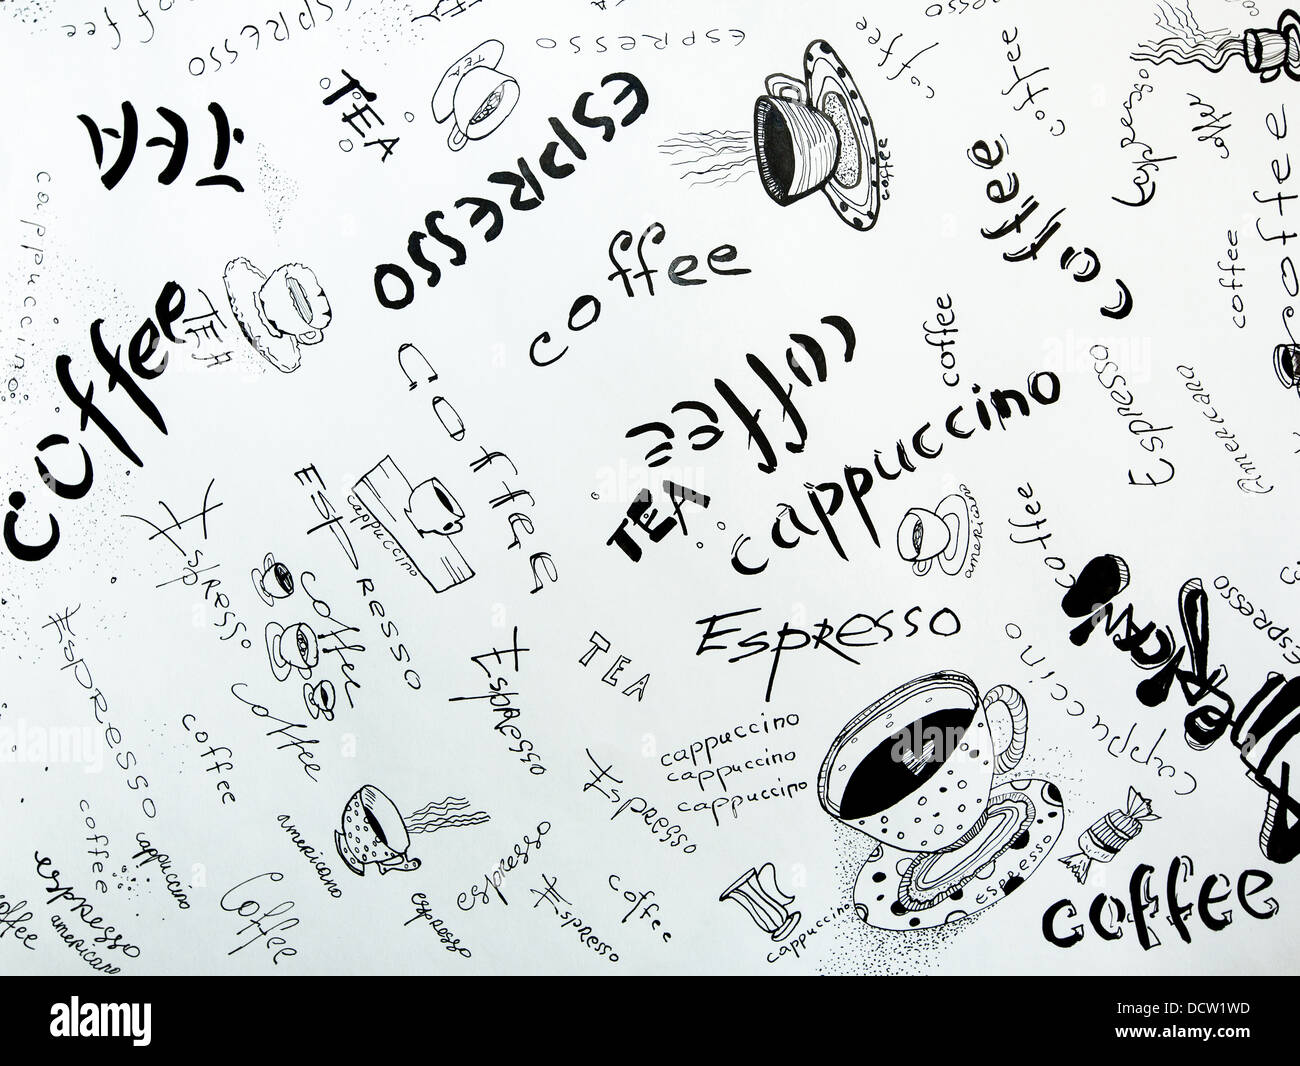 coffee
ESPRESSO
ESPRESSO
coffee
coffee
Espresso
coffee
TEA
TEA
ESPRESSO
coffee
TEA
coffee
coffee
coffee
coffee
cappuccino
coffee
coffee
TEA
coffee
coffee
coffee
coffee
Espresso
Americano
cappuccino
TEA
americano
coffee
ESPRESSO
cappuccino
Espresso
coffee
Espresso
TEA
Espresso
Espresso
cappuccino
Espresso
coffee
coffee
cappuccino
cappuccino
cappuccino
Espresso
coffee
cappuccino
americano
espresso
espresso
Espresso
coffee
espresso
cappuccino
coffee
Coffee
espresso
americano
coffee
alamy
DCW1WD
www.alamy.com